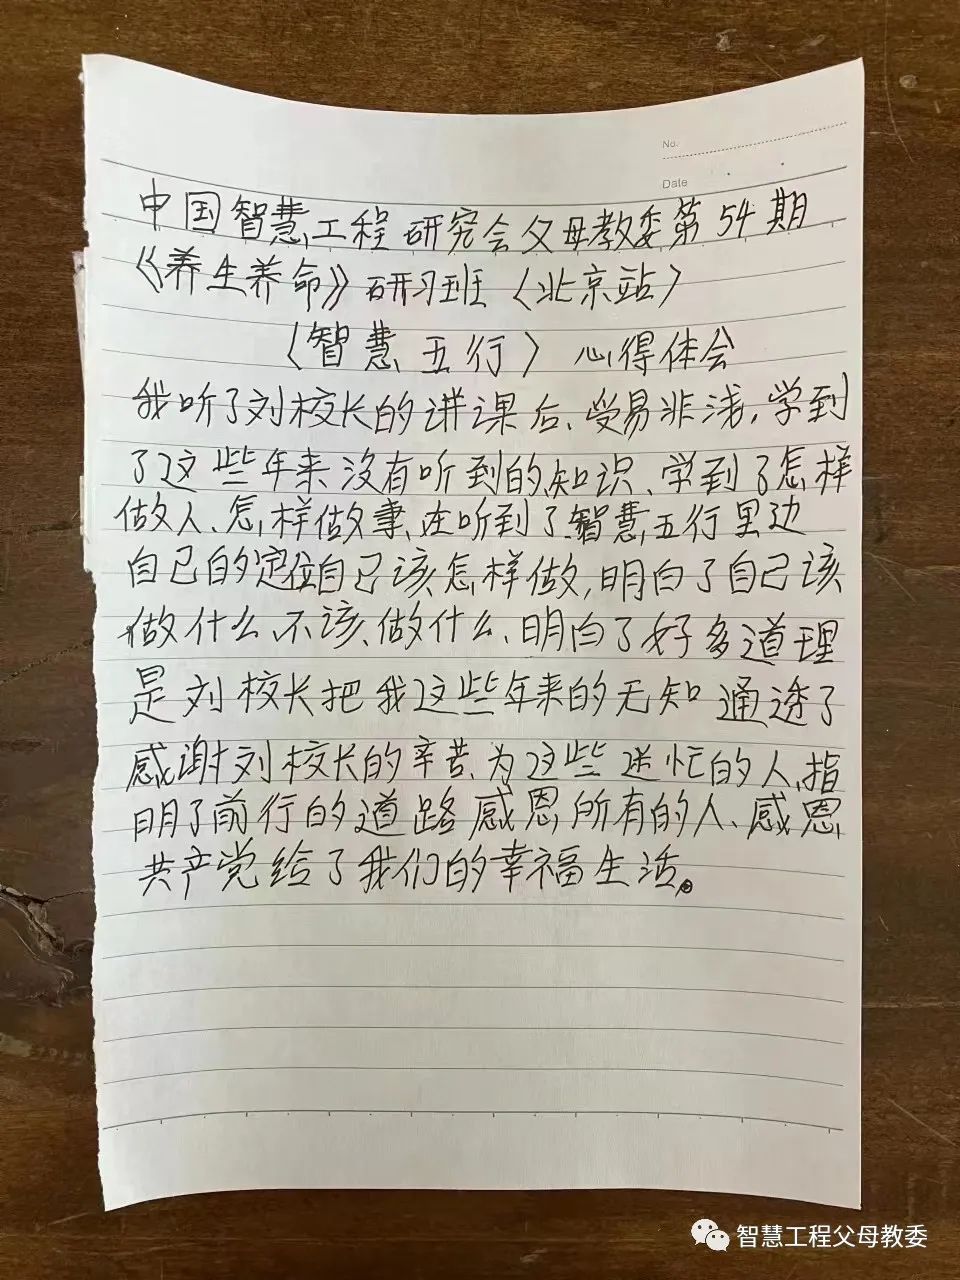 No.
Date
中国智慧工程研究会父母教委第54期
《养生养命》研习班〈北京站〉
〈智慧五行〉心得体会
我听了刘校长的讲课后、受易非浅,学到
了这些年来没有听到的知识、学到了怎样
做人、怎样做事、在听到了智慧五行里边
自己的定位自己该怎样做,明白了自己该
做什么、不该、做什么、明白了好多道理
是刘校长把我这些年来的无知通透了
感谢刘校长的辛苦、为这些迷忙的人、指
明了前行的道路感恩所有的人、感恩
共产党给了我们的幸福生活。
智慧工程父母教委